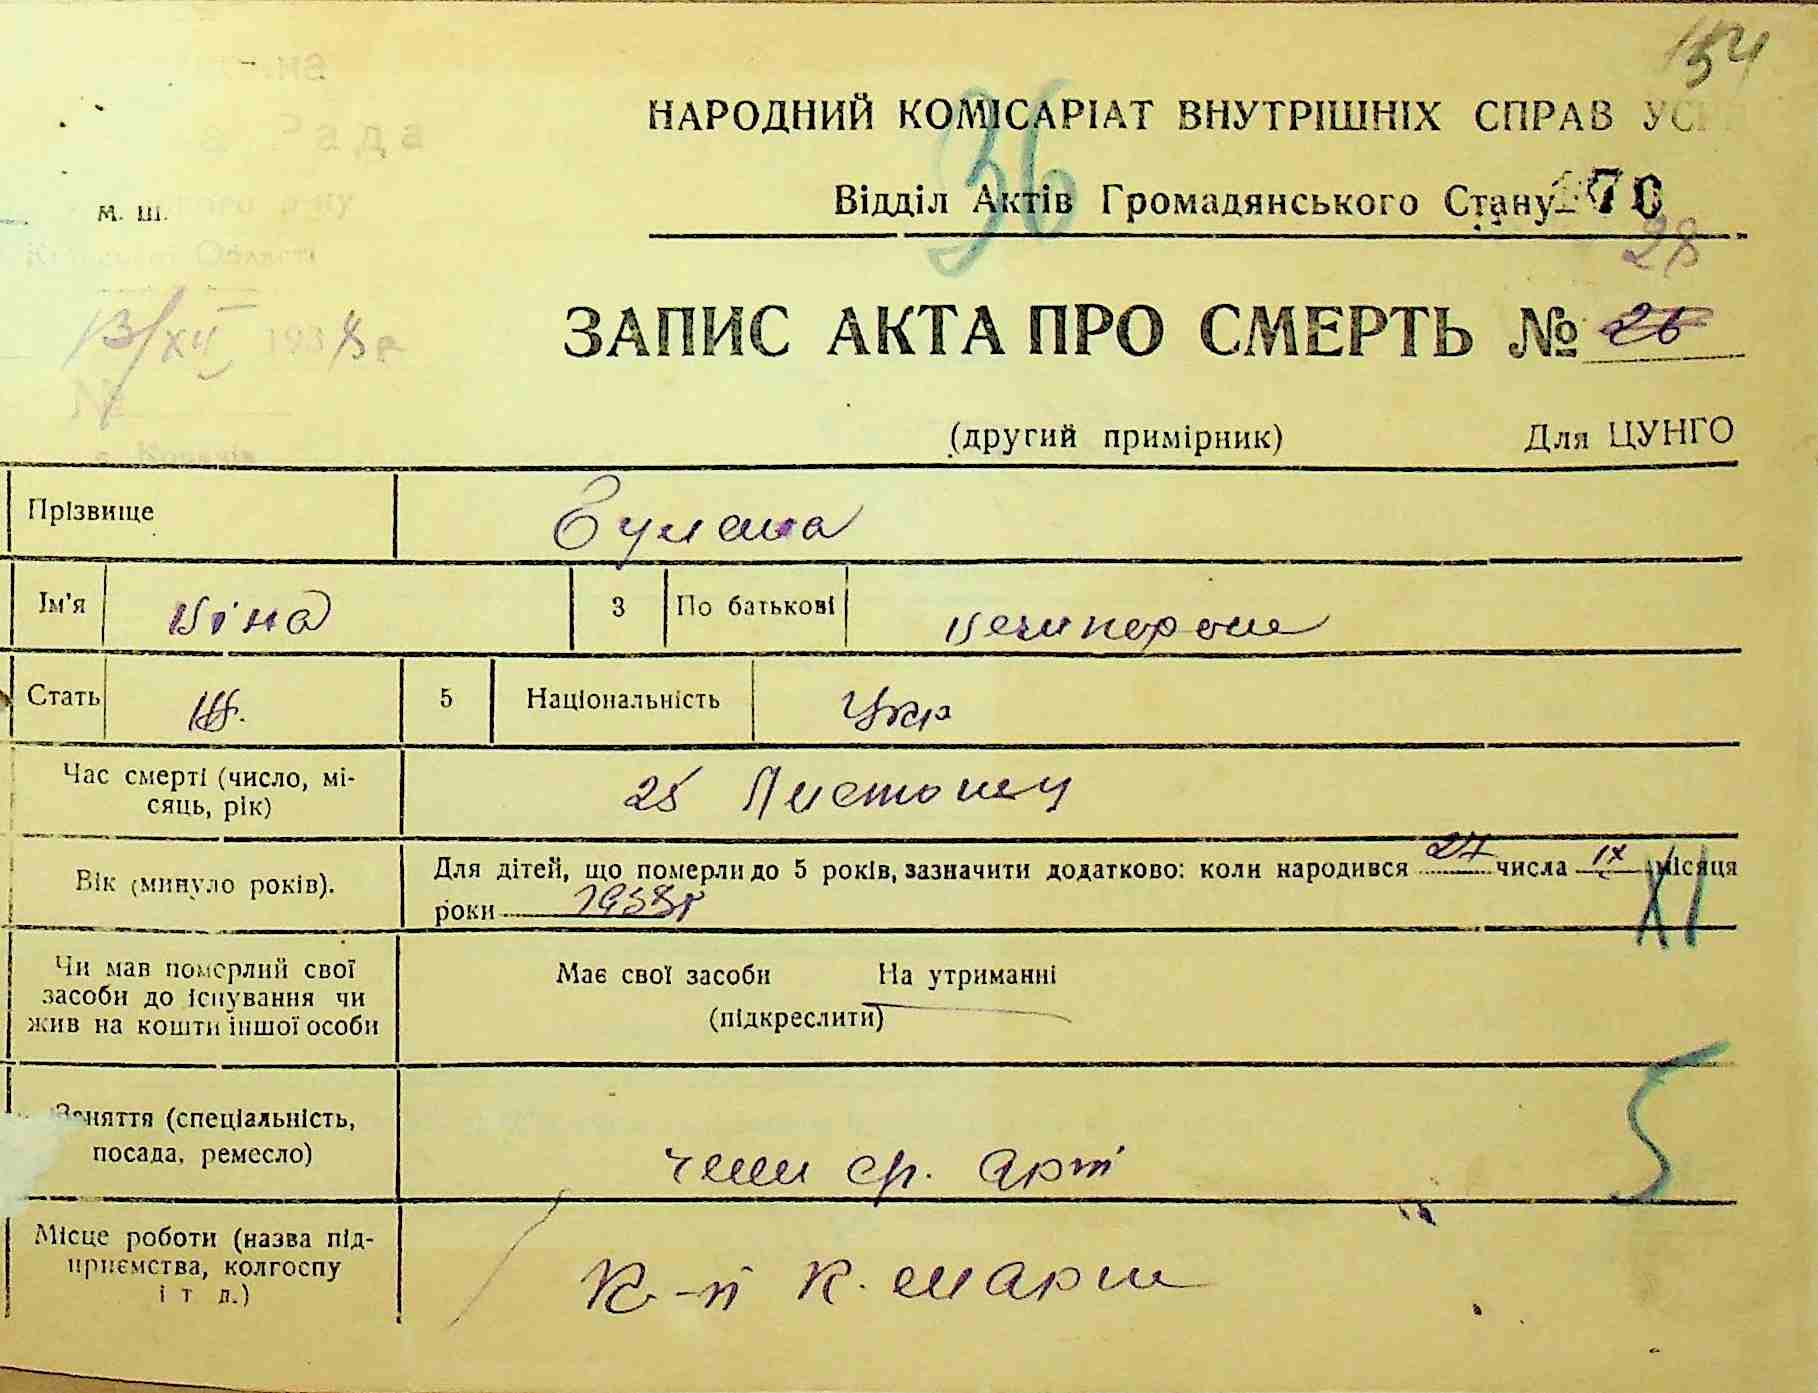 154
НАРОДНИЙ КОМІСАРІАТ ВНУТРІШНІХ СПРАВ УСРР
36
Відділ Актів Громадянського Стану
70
М. Ш.
Рада
Області
28
13/XII 1938 р
ЗАПИС АКТА ПРО СМЕРТЬ № 26
№
(другий примірник) Для ЦУНГО
Прізвище
Ім'я Ніна 3 По батькові
Стать 5 Національність Укр
Час смерті (число, мі-
сяць, рік)
25
Вік (минуло років).
Для дітей, що померли до 5 років, зазначити додатково: коли народився 27 числа IX місяця
XI
роки 1938р
Чи мав померлий свої
засоби до існування чи
жив на кошти іншої особи
Має свої засоби На утриманні
(підкреслити)
5
Заняття (спеціальність,
посада, ремесло)
член ср. арт
Місце роботи (назва під-
приємства, колгоспу
і т д.)
К-п К. Маркса